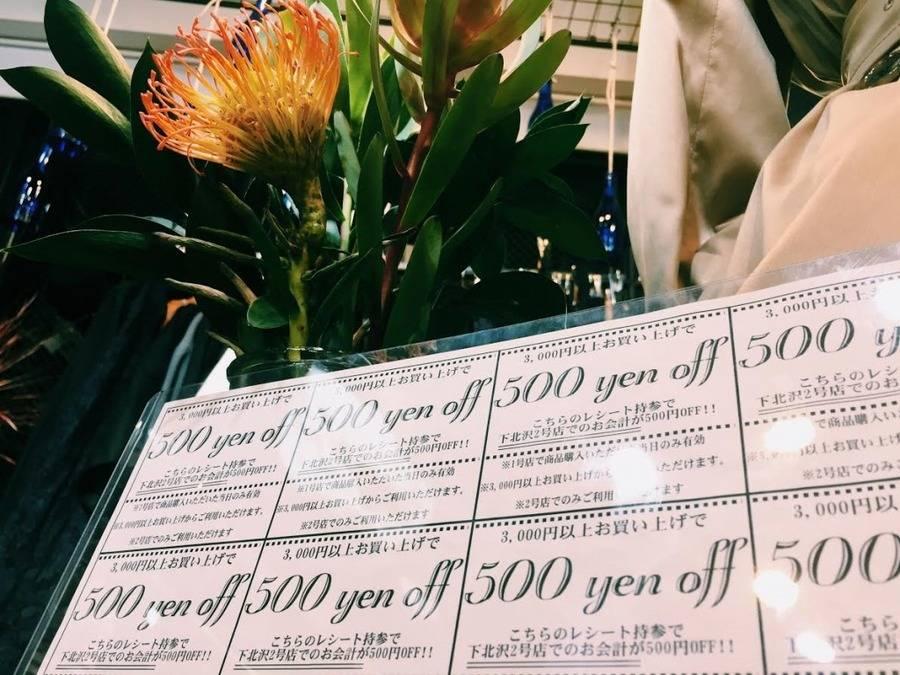 3,000円以上お買い上げで
500 yen off
こちらのレシート持参で
下北沢2号店でのお会計が500円OFF!!
※1号店で商品購入いただいた当日のみ有効
※3,000円以上お買い上げからご利用いただけます。
※2号店でのみご利用いただけます
3,000円以上お買い上げで
500 yen off
こちらのレシート持参で
下北沢2号店でのお会計が500円OFF!!
※1号店で商品購入いただいた当日のみ有効
※3,000円以上お買い上げからご利用いただけます。
※2号店でのみご利用いただけます
3,000円以上お買い上げで
500 yen off
こちらのレシート持参で
下北沢2号店でのお会計が500円OFF!!
※1号店で商品購入い　　　当日のみ有効
※3,000円以上お買い上げか　　　用いただけます。
※2号店でのみご利用　　　ます
3,000円以上お
500 y
こちらのレ
下北沢2号店でのお
※1　　　商品購入い
3,000円以上お買い上げ
※2号店でのみご
3,000円以上お買い上げで
500 yen off
こちらのレシート持参で
下北沢2号店でのお会計が500円OFF!!
3,000円以上お買い上げで
500 yen off
こちらのレシート持参で
下北沢2号店でのお会計が500円OFF!!
3,000円以上お買い上げで
500 yen off
こちらのレシート持参で
下北沢2号店でのお会計が500円OFF!!
3,000円以
500
こちらの
2号店での